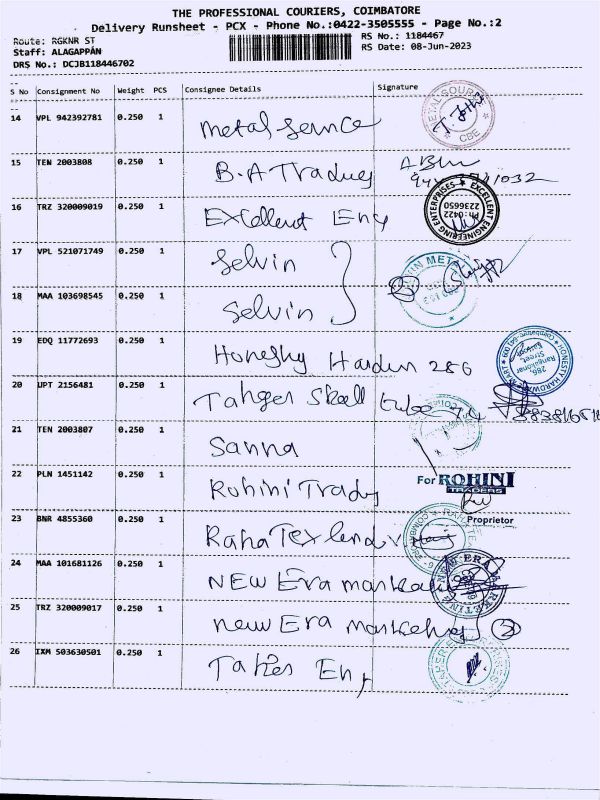 THE PROFESSIONAL COURIERS, COIMBATORE
Delivery Runsheet - PCX - Phone No.:0422-3505555 - Page No.:2
Route: RGKNR ST
RS No.: 1184467
Staff: ALAGAPPAN
RS Date: 08-Jun-2023
DRS No.: DCJB118446702
S No Consignment No Weight PCS Consignee Details Signature
14 VPL 942392781 0.250 1 Metal Service
METAL SOURCE CBE
15 TEN 2003808 0.250 1 B.A Trading
16 TRZ 320009019 0.250 1 Excellent Eng
EXCELLENT ENGINEERING ENTERPRISES Ph:0422 2236650
17 VPL 521071749 0.250 1 Selvin
18 MAA 103698545 0.250 1 Selvin
19 EDQ 11772693 0.250 1 Honesty Hardw 286
HONESTY HARDWARE MART 286, Rangakonar Street
20 UPT 2156481 0.250 1
21 TEN 2003807 0.250 1 Sanna
22 PLN 1451142 0.250 1 Rohini Trady
For ROHINI TRADERS
Proprietor
23 BNR 4855360 0.250 1
24 MAA 101681126 0.250 1 NEW Era
NEW ERA MARKETING
25 TRZ 320009017 0.250 1 new Era marketing 2
26 IXM 503630501 0.250 1